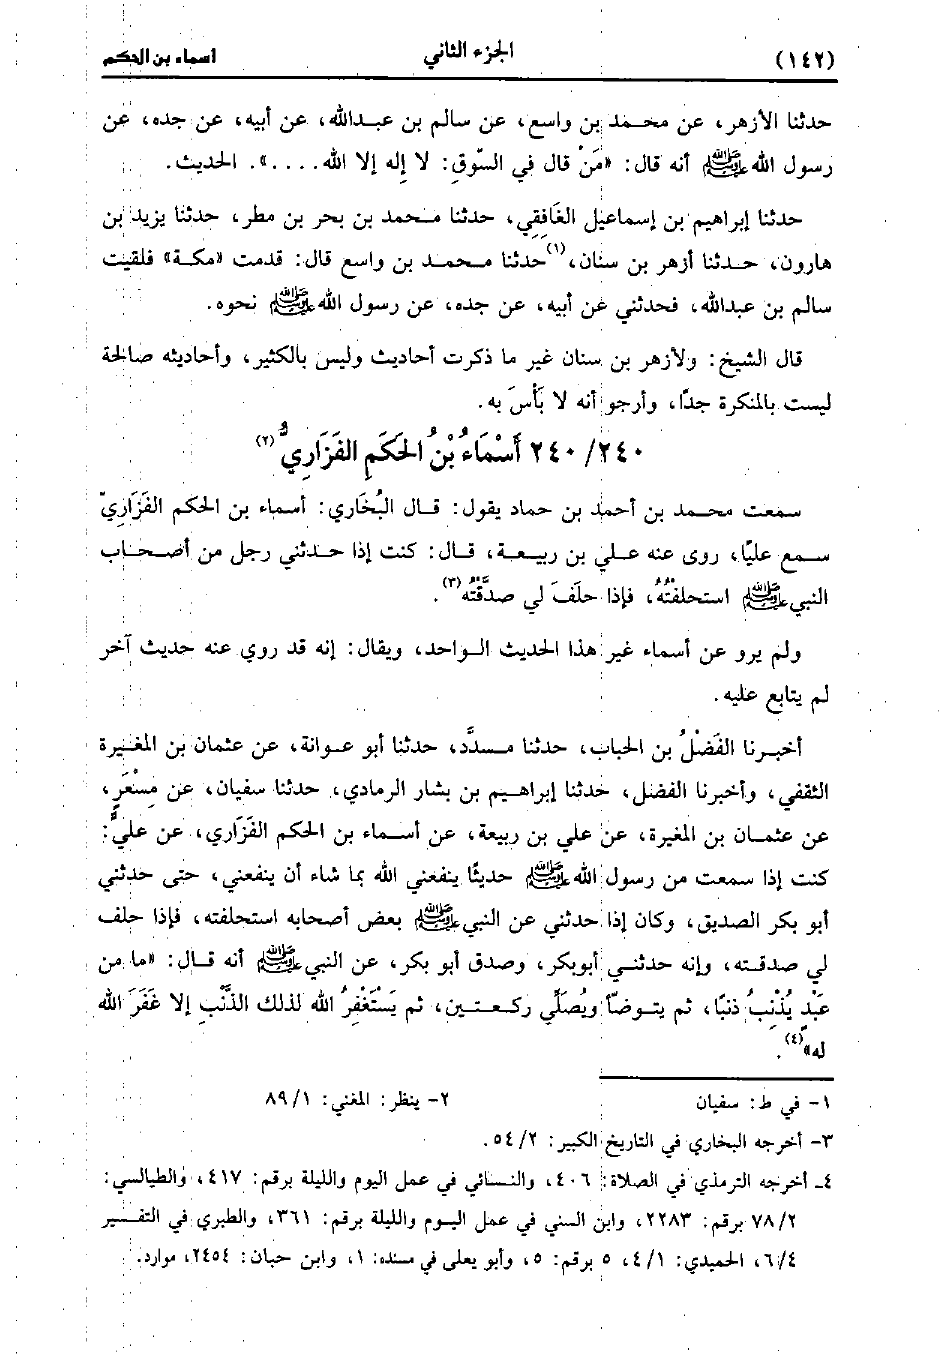 (١٤٢) الجزء الثاني أسماء بن الحكم
حدثنا الأزهر، عن محمد بن واسع، عن سالم بن عبدالله، عن أبيه، عن جده، عن
رسول الله ﷺ أنه قال: «مَنْ قال في السّوقِ: لا إله إلا الله....». الحديث.
حدثنا إبراهيم بن إسماعيل الغَافِقِي، حدثنا محمد بن بحر بن مطر، حدثنا يزيد بن
هارون، حدثنا أزهر بن سنان،(١) حدثنا محمد بن واسع قال: قدمت «مكة» فلقيت
سالم بن عبدالله، فحدثني عن أبيه، عن جده، عن رسول الله ﷺ نحوه.
قال الشيخ: ولأزهر بن سنان غير ما ذكرت أحاديث وليس بالكثير، وأحاديثه صالحة
ليست بالمنكرة جدًا، وأرجو أنه لا بَأْسَ به.
٢٤٠/ ٢٤٠ أَسْمَاءُ بْنُ الحَكَمِ الفَزَارِيُّ(٢)
سمعت محمد بن أحمد بن حماد يقول: قال البُخَاري: أسماء بن الحكم الفَزَارِيّ
سمع عليًا، روى عنه علي بن ربيعة، قال: كنت إذا حدثني رجل من أصحاب
النبي ﷺ استحلفتُهُ، فإذا حلَفَ لي صدَّقْتُه(٣).
ولم يرو عن أسماء غير هذا الحديث الواحد، ويقال: إنه قد روي عنه حديث آخر
لم يتابع عليه.
أخبرنا الفَضْلُ بن الحباب، حدثنا مسدَّد، حدثنا أبو عوانة، عن عثمان بن المغيرة
الثقفي، وأخبرنا الفضل، حدثنا إبراهيم بن بشار الرمادي، حدثنا سفيان، عن مِسْعَرٍ،
عن عثمان بن المغيرة، عن علي بن ربيعة، عن أسماء بن الحكم الفَزَاري، عن عليٍّ:
كنت إذا سمعت من رسول الله ﷺ حديثًا ينفعني الله بما شاء أن ينفعني، حتى حدثني
أبو بكر الصديق، وكان إذا حدثني عن النبي ﷺ بعض أصحابه استحلفته، فإذا حلف
لي صدقته، وإنه حدثني أبوبكر، وصدق أبو بكر، عن النبي ﷺ أنه قال: «ما من
عَبْدٍ يُذْنِبُ ذنبًا، ثم يتوضّأ ويُصَلِّي ركعتين، ثم يَسْتَغْفِرُ الله لذلك الذَّنْبِ إلا غَفَرَ الله
له»(٤).
١- في ط: سفيان ٢- ينظر: المغني: ٨٩/١
٣- أخرجه البخاري في التاريخ الكبير: ٥٤/٢.
٤- أخرجه الترمذي في الصلاة: ٤٠٦، والنسائي في عمل اليوم والليلة برقم: ٤١٧، والطيالسي:
٧٨/٢ برقم: ٢٢٨٣، وابن السني في عمل اليوم والليلة برقم: ٣٦١، والطبري في التفسير
٦/٤، الحميدي: ٤/١، ٥ برقم: ٥، وأبو يعلى في مسنده: ١، وابن حبان: ٢٤٥٤، موارد.